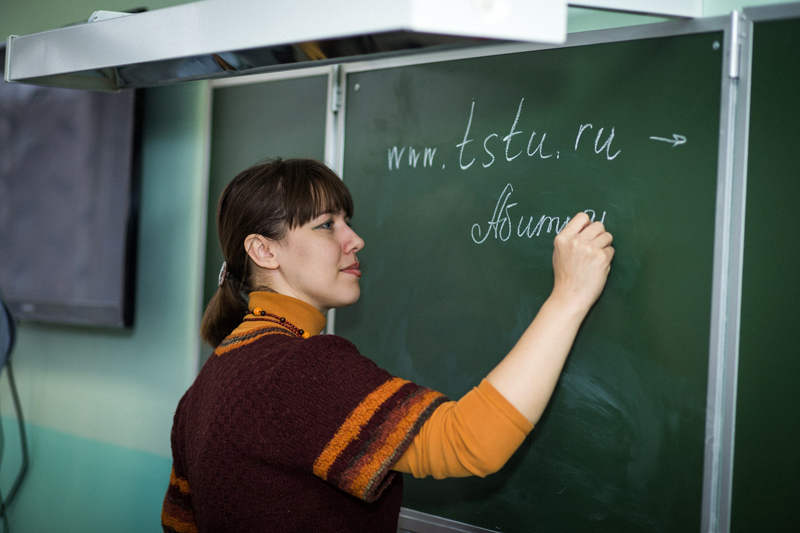 www.tstu.ru →
Абитури